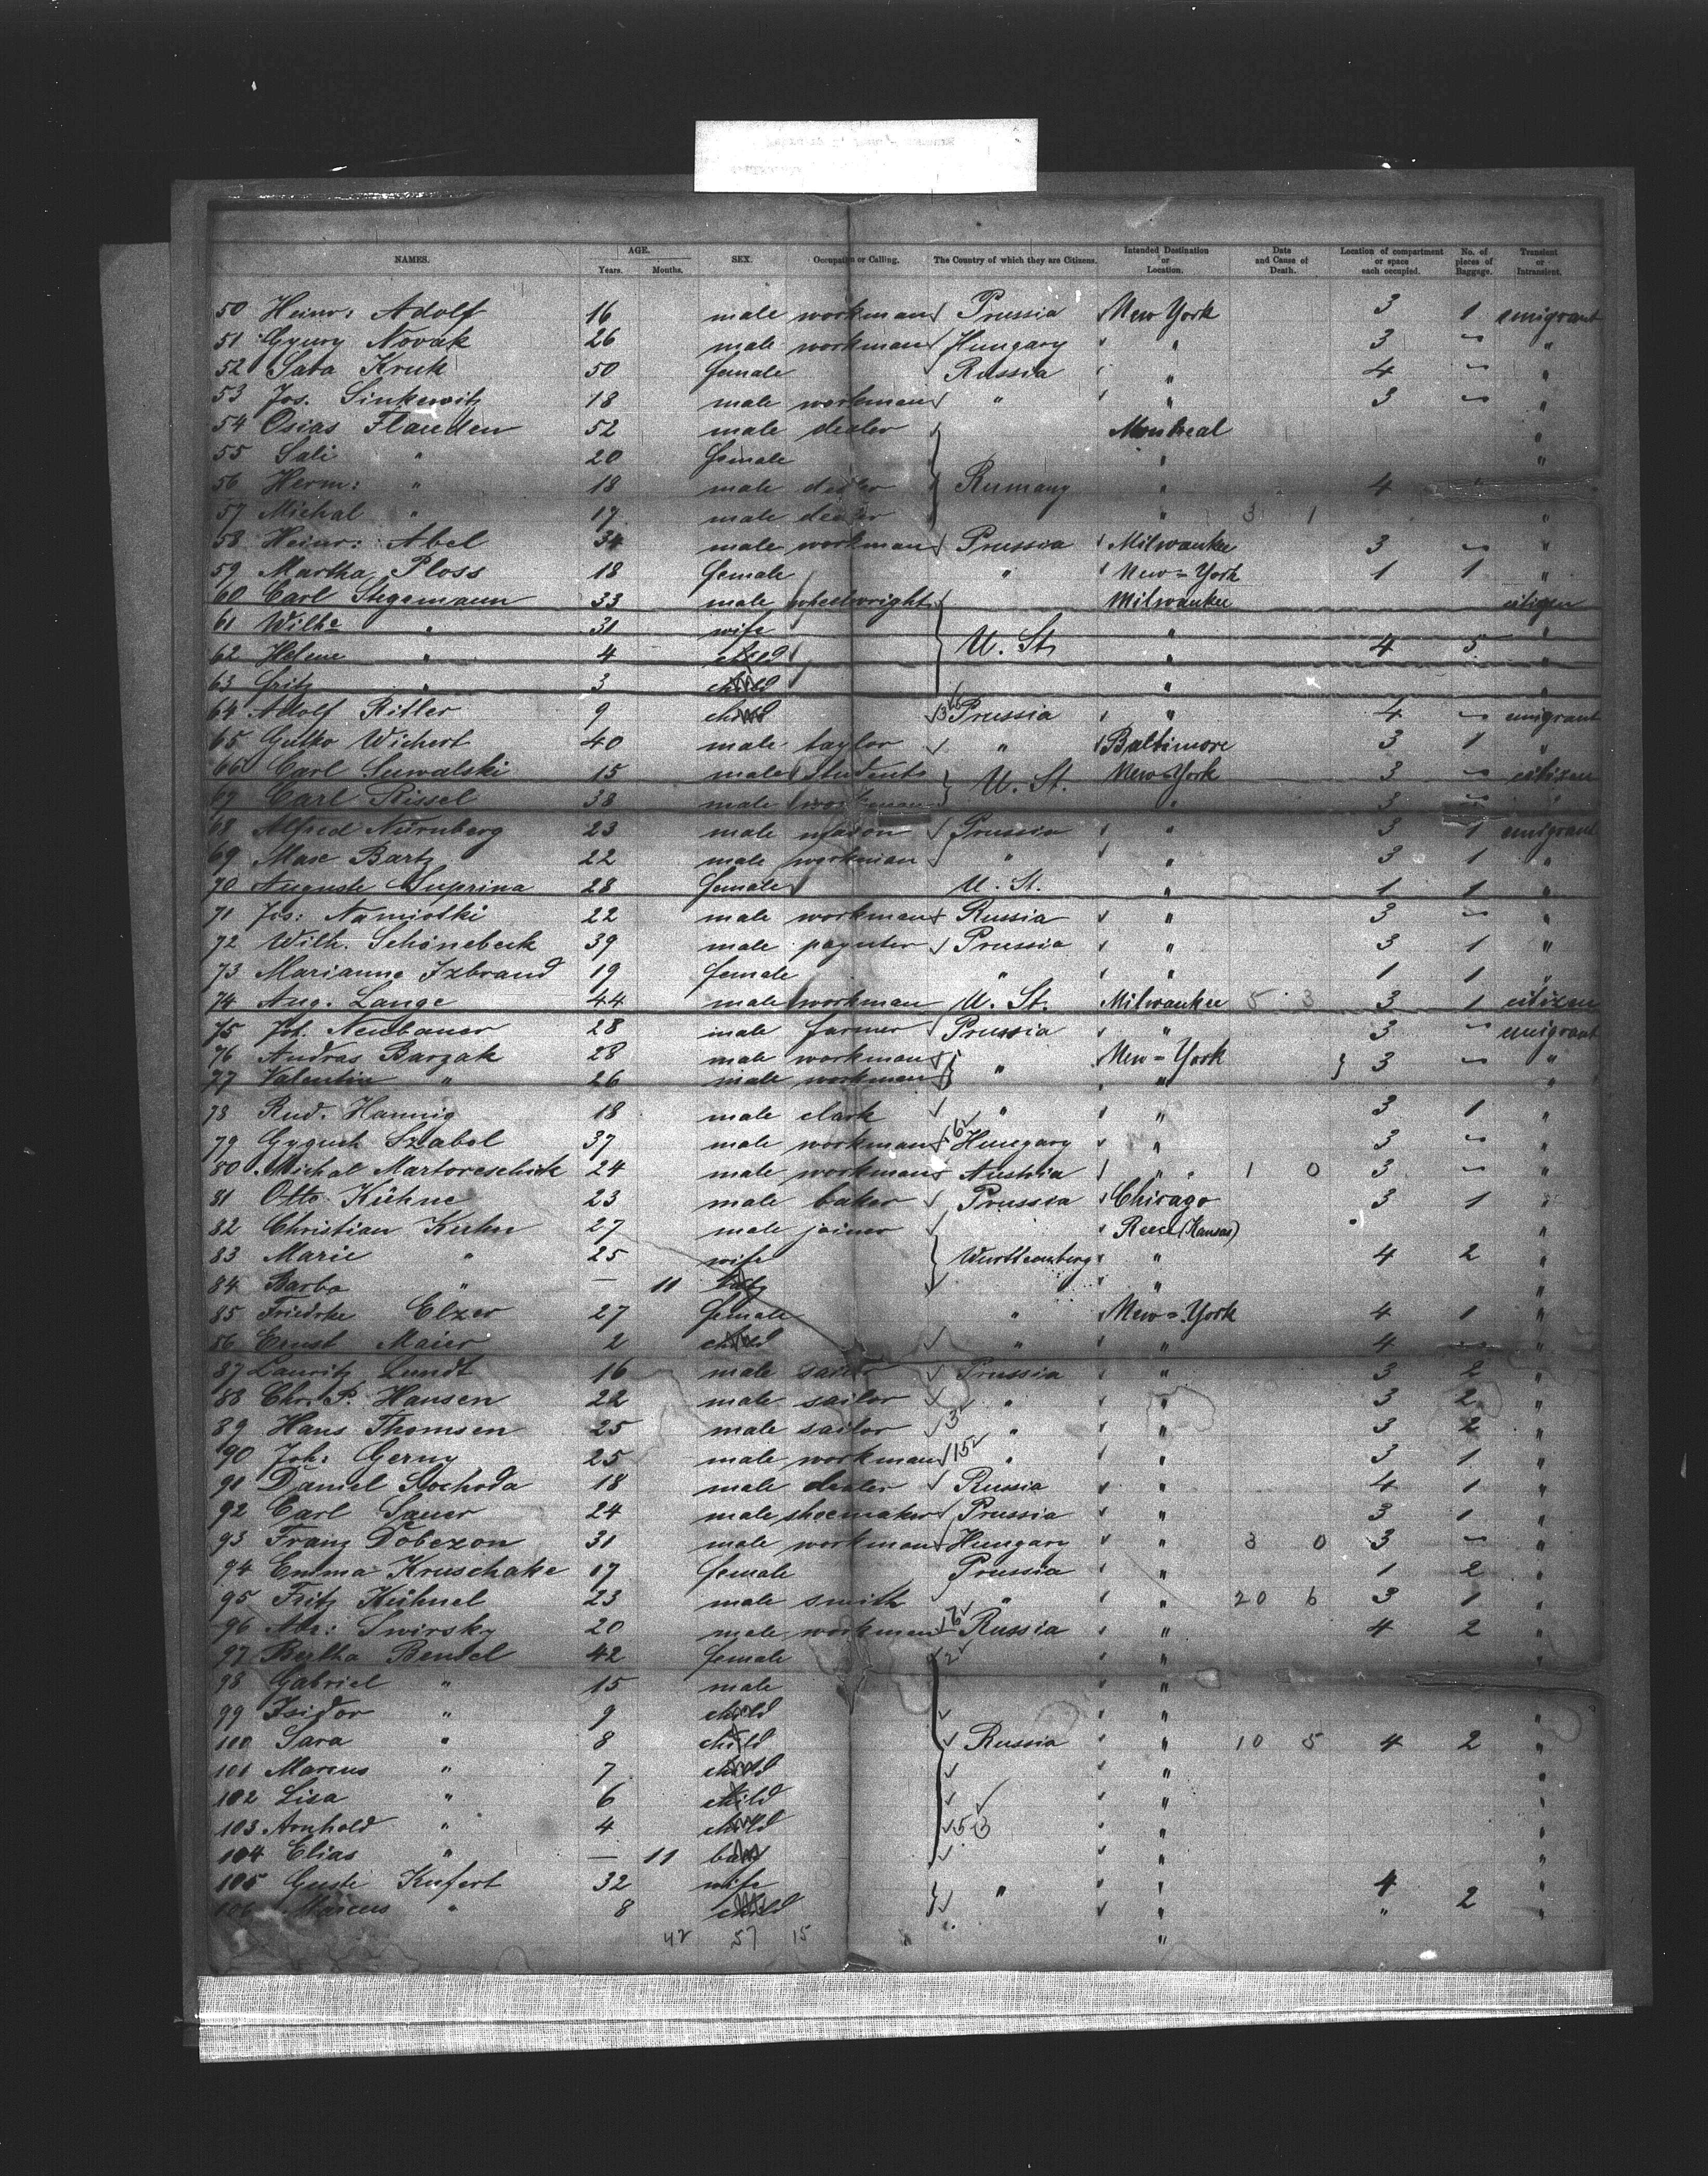 NAMES. AGE. Years. Months. SEX. Occupation or Calling. The Country of which they are Citizens. Intended Destination or Location. Date and Cause of Death. Location of compartment or space each occupied. No. of pieces of Baggage. Transient or Intransient.
50 Heinr: Adolf 16 male workman Prussia New York 3 1 emigrant
51 Novak 26 male workman Hungary " 3 — "
52 Sara Kruk 50 female Russia " 4 — "
53 Jos. Sinkewitz 18 male workman " " 3 — "
54 Osias 52 male dealer Montreal "
55 Sali " 20 female " "
56 Herm: " 18 male dealer Rumany " 4
57 Michal " 17 male dealer " 3 1 "
58 Heinr: Abel 34 male workman Prussia Milwaukee 3 — "
59 Martha Ploss 18 female " New=York 1 1 "
60 Carl Stegemann 33 male wheelwright Milwaukee citizen
61 Wilhe " 31 wife " "
62 Helene " 4 child U. St. " 4 5 "
63 Fritz " 3 child " "
64 Adolf Ritler 9 child Prussia " 4 — emigrant
65 Wichert 40 male taylor " Baltimore 3 1 "
66 Carl Suwalski 15 male student U. St. New=York 3 — citizen
67 Carl Rissel 38 male workman " 3 — "
68 Alfred Nürnberg 23 male mason Prussia " 3 1 emigrant
69 Max Bartz 22 male workman " " 3 1 "
70 Auguste Suprina 28 female U. St. " 1 1 "
71 Jos: Namiotki 22 male workman Russia " 3 — "
72 Wilh. Schönebeck 39 male paynter Prussia " 3 1 "
73 Marianne Izbrand 19 female " " 1 1 "
74 Aug. Lange 44 male workman U. St. Milwaukee 5 3 3 1 citizen
75 Joh. Neubauer 28 male farmer Prussia " 3 — emigrant
76 Andras Barzak 28 male workman " New=York 3 — "
77 Valentin " 26 male workman " "
78 Rud. Hannig 18 male clark " " 3 1 "
79 Szabol 37 male workman 6 Hungary " 3 — "
80 Michal Martoreschick 24 male workman Austria " 1 0 3 — "
81 Otto Kühne 23 male baker Prussia Chicago 3 1 "
82 Christian Kuhn 27 male joiner Reece (Kansas) "
83 Marie " 25 wife Württemberg " 4 2 "
84 Barba " — 11 baby " "
85 Friedrke Elzer 27 female " New=York 4 1 "
86 Ernst Maier 2 child " " 4 — "
87 Lauritz Lundt 16 male sailor Prussia " 3 2 "
88 Chr. P. Hansen 22 male sailor " " 3 2 "
89 Hans Thomsen 25 male sailor 3 " " 3 2 "
90 Joh: Gerny 25 male workman 15 " " 3 1 "
91 Daniel Sochoda 18 male dealer Russia " 4 1 "
92 Carl Sauer 24 male shoemaker Prussia " 3 1 "
93 Franz Dobezon 31 male workman Hungary " 3 0 3 — "
94 Emma Kruschake 17 female Prussia " 1 2 "
95 Fritz Kühnel 23 male smith " " 20 6 3 1 "
96 Abr: Swirsky 20 male workman Russia " 4 2 "
97 Bertha Bendel 42 female 2 " "
98 Gabriel " 15 male "
99 Isidor " 9 child " "
100 Sara " 8 child Russia " 10 5 4 2 "
101 Marcus " 7 child " "
102 Lisa " 6 child " "
103 Arnhold " 4 child 53 " "
104 Elias " — 11 baby " "
105 Guste Kufert 32 wife " " 4 "
106 Marcus " 8 child " " 2 "
42 57 15 "